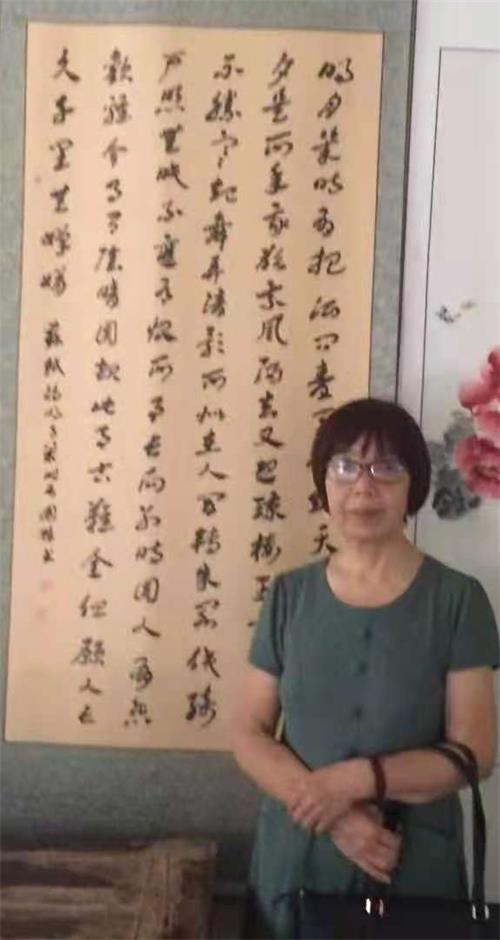 明月幾時有把酒問青天
夕是何年我欲乘風歸去又恐瓊樓玉
不勝寒起舞弄清影何似在人間轉朱閣低綺
戶照無眠不應有恨何事長向別時圓人有悲
歡離合月有陰晴圓缺此事古難全但願人長
久千里共嬋娟 蘇軾詞